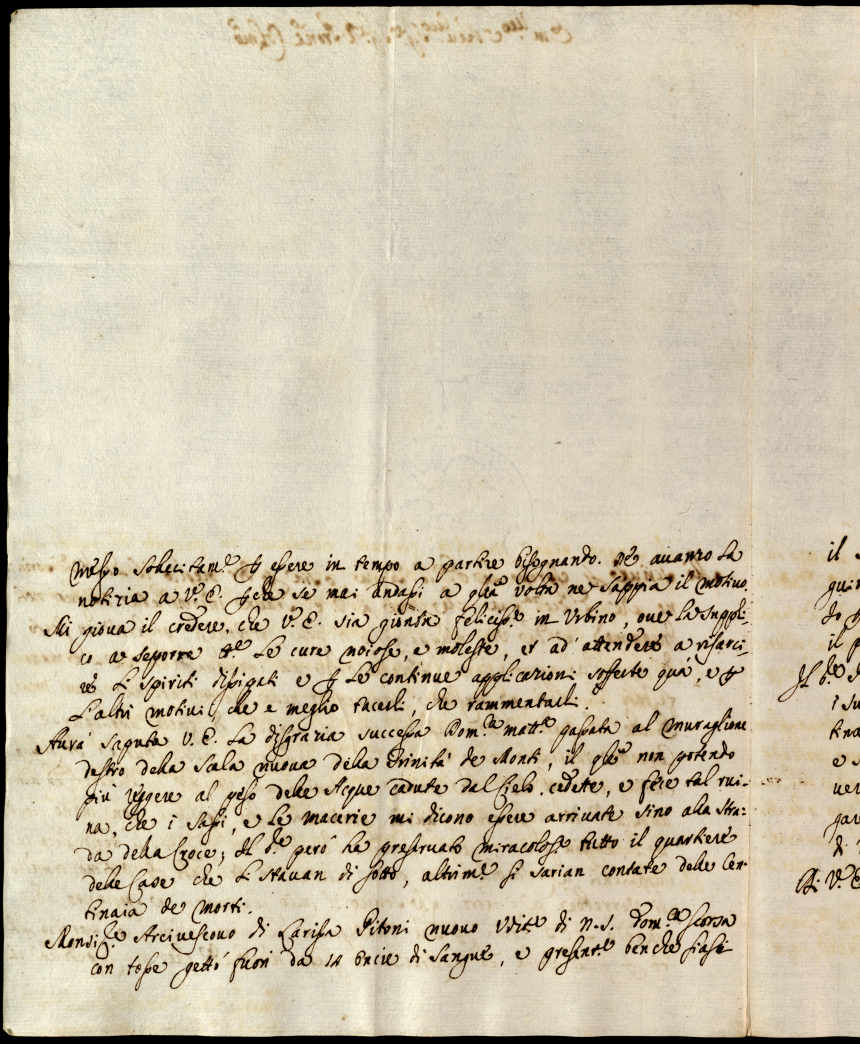 messo sollecitam.te p essere in tempo a partire bisognando. Ne avanzo la
notizia a V.E. pche se mai andassi a qlla volta ne sappia il motivo.
Mi giova il credere, che V.E. sia giunta feliciss.e in Urbino, ove la suppli-
co a deporre le cure noiose, e moleste, et ad attendere a risarci-
re li spiriti dissipati e p le continue applicazioni sofferte quà, e p
l'altri motivi, che e meglio tacerli, che rammentarli.
Avrà saputa V.E. la disgrazia successa Dom.ca matt.a passata al muraglione
destro della Scala nuova della Trinità de Monti, il qle non potendo
più reggere al peso delle Acque cadute dal Cielo cedete, e fece tal rui-
na, che i sassi, e le macerie mi dicono essere arrivate sino alla Stra-
da della Croce; Il S.re però ha preservato miracolos.e tutto il quartiere
delle Case che li stavan di sotto, altrim.e si sarian contate delle Cen-
tinaia de morti.
Monsig.re Arcivescovo di Larissa Pitoni nuovo Udit.e di N.S. Dom.ca scorsa
con tosse gettò fuori da 14 oncie di Sangue, e present.e benche siasi
il
guir
do
il
Il S.re
i su
tina
e
ver
gar
di
Di V.E